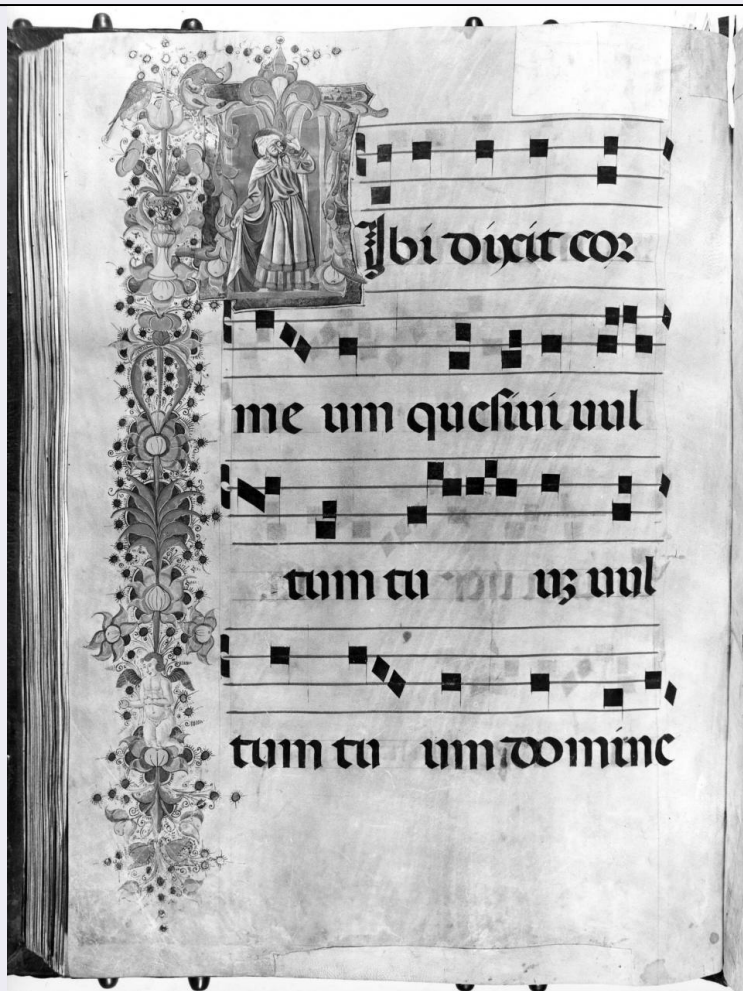 Tibi dixit cor
me um quesiui uul
tum tu uʒ uul
tum tu um domine